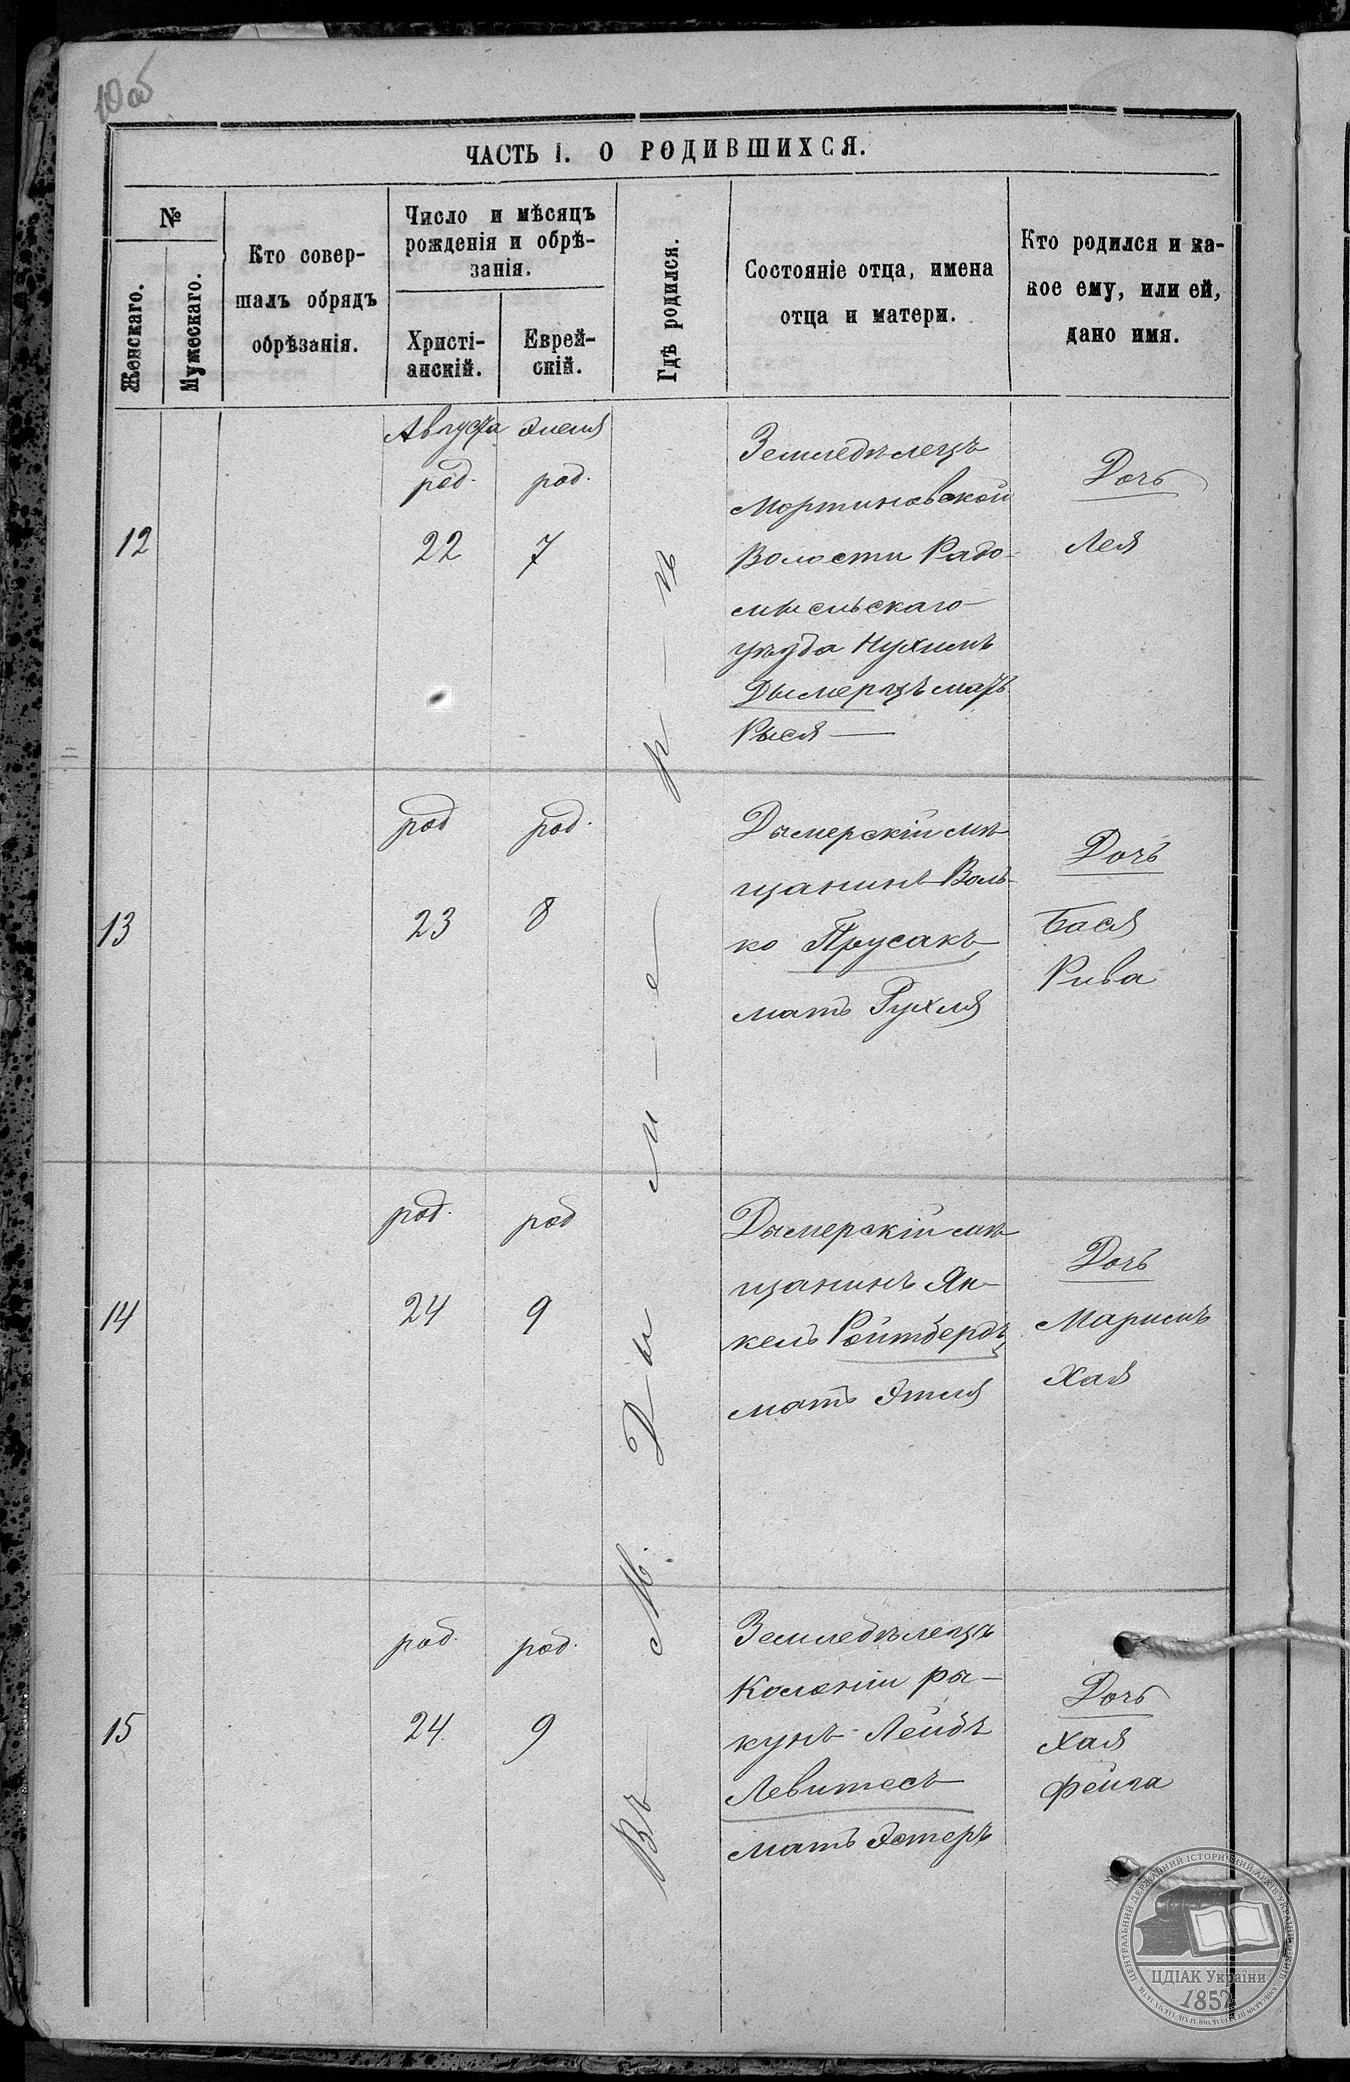 10об
ЧАСТЬ I. О РОДИВШИХСЯ.
№
Женскаго.
Мужескаго.
Кто совер-
шалъ обрядъ
обрѣзанія.
Число и мѣсяцъ
рожденія и обрѣ-
занія.
Христі-
анскій.
Еврей-
скій.
Гдѣ родился.
Состояніе отца, имена
отца и матери.
Кто родился и ка-
кое ему, или ей,
дано имя.
Въ М. Дымерѣ
12
Августа
род.
22
Элеля
род.
7
Земледѣлецъ
Мортиновской
Волости Радо-
мысльскаго
уѣзда Нухимъ
Дымерецъ мать
Рыся
Дочь
Лея
13
род
23
род.
8
Дымерскій мѣ-
щанинъ Воль-
ко Прусакъ,
мать Рухля
Дочь
Бася
Рива
14
род.
24
род
9
Дымерскій мѣ-
щанинъ Ян-
кель Ройтбергъ,
мать Этля
Дочь
Маримъ
Хая
15
род.
24.
род.
9
Земледѣлецъ
Колоніи ры-
кунъ Лейбъ
Левитесъ
мать Эстеръ
Дочь
Хая
Фейга
ЦЕНТРАЛЬНИЙ ДЕРЖАВНИЙ ІСТОРИЧНИЙ АРХІВ УКРАЇНИ
ЦДІАК України
1852